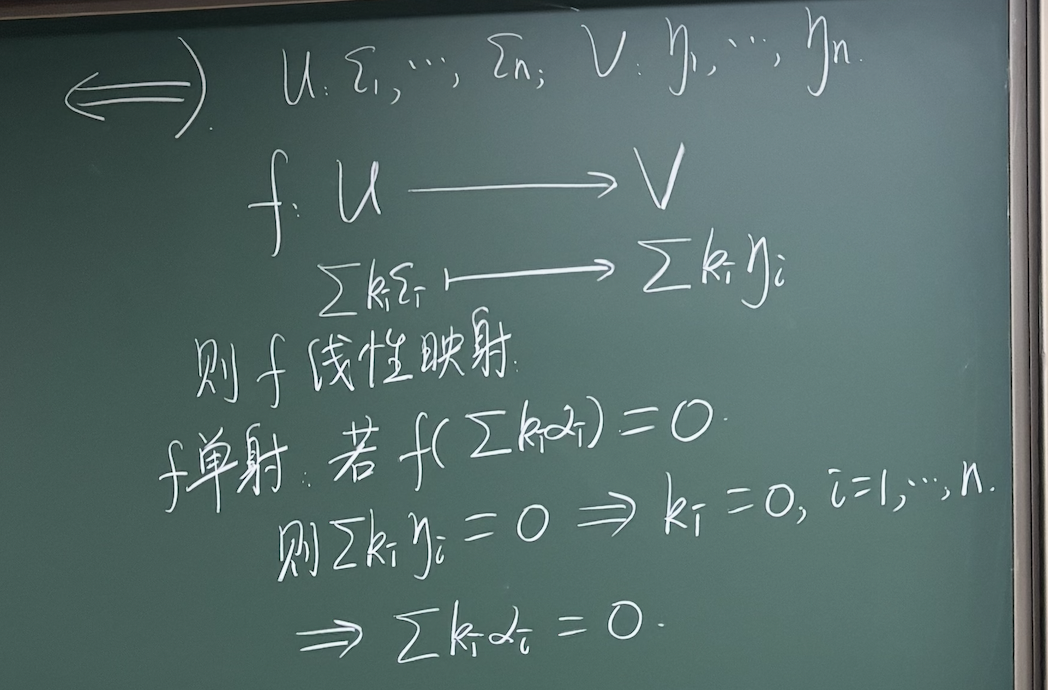 ⇐) U: ε₁, ⋯, εₙ; V: η₁, ⋯, ηₙ.
f: U ⟶ V
∑kᵢεᵢ ⟼ ∑kᵢηᵢ
则 f 线性映射.
f 单射: 若 f(∑kᵢαᵢ) = 0.
则 ∑kᵢηᵢ = 0 ⇒ kᵢ = 0, i=1, ⋯, n.
⇒ ∑kᵢαᵢ = 0.